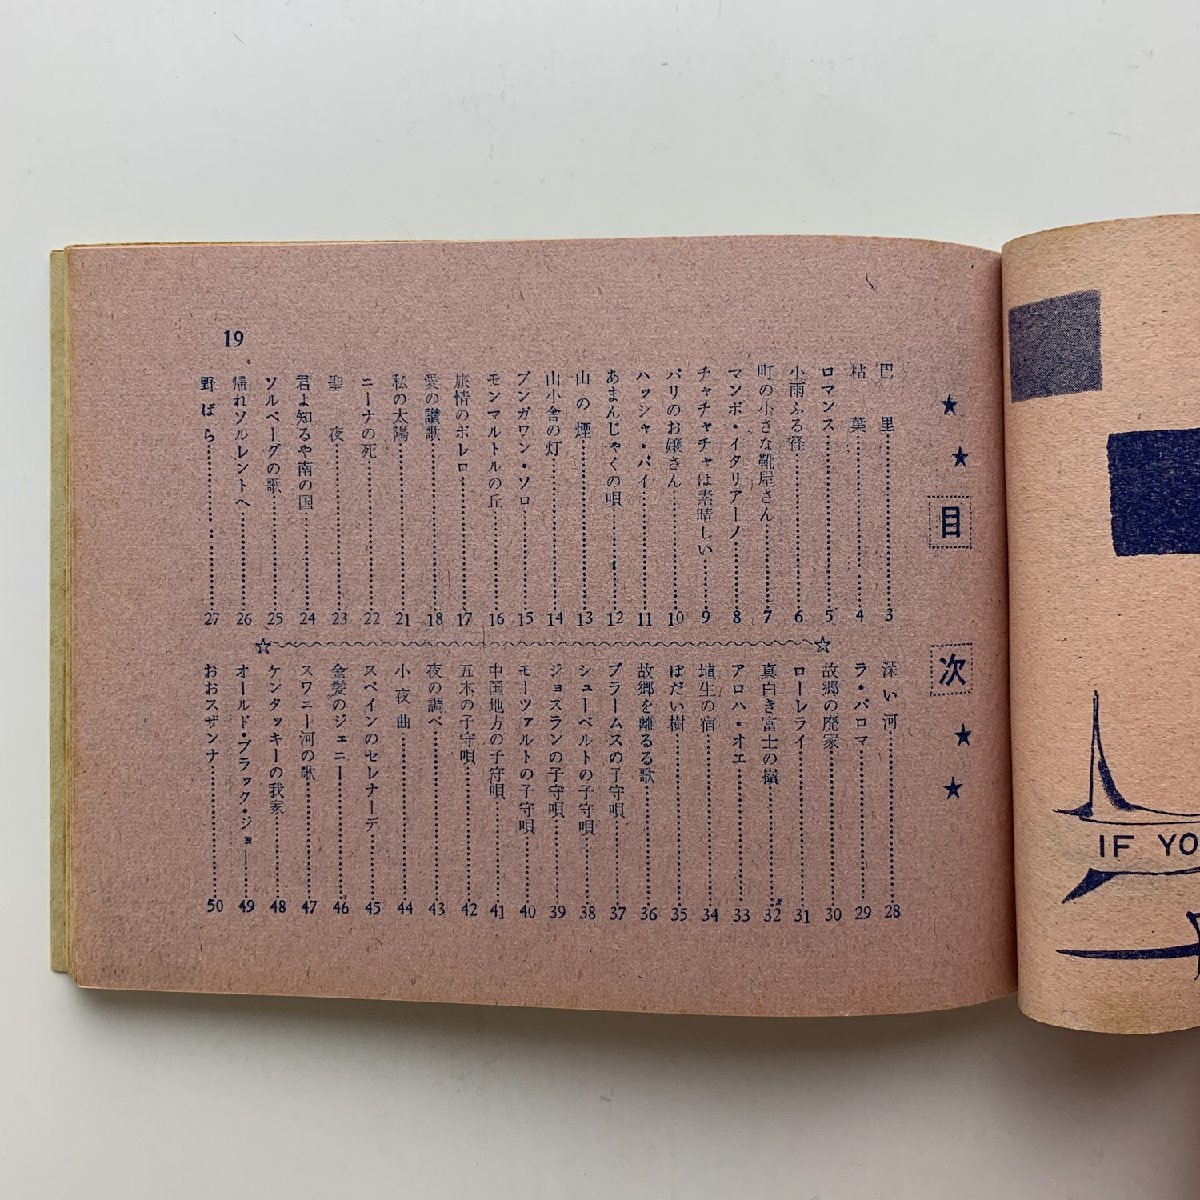 目次
巴里 3
枯葉 4
ロマンス 5
小雨ふる径 6
町の小さな靴屋さん 7
マンボ・イタリアーノ 8
チャチャチャは素晴しい 9
パリのお嬢さん 10
ハッシャ・バイ 11
あまんじゃくの唄 12
山の煙 13
山小舎の灯 14
ブンガワン・ソロ 15
モンマルトルの丘 16
旅情のボレロ 17
愛の讃歌 18
19
私の太陽 21
ニーナの死 22
聖夜 23
君よ知るや南の国 24
ソルベーグの歌 25
帰れソルレントへ 26
野ばら 27
深い河 28
ラ・パロマ 29
故郷の廃家 30
ローレライ 31
真白き富士の嶺 32
アロハ・オエ 33
埴生の宿 34
ぼだい樹 35
故郷を離るる歌 36
ブラームスの子守唄 37
シューベルトの子守唄 38
ジョスランの子守唄 39
モーツァルトの子守唄 40
中国地方の子守唄 41
五木の子守唄 42
夜の調べ 43
小夜曲 44
スペインのセレナーデ 45
金髪のジェニー 46
スワニー河の歌 47
ケンタッキーの我家 48
オールド・ブラック・ジョー 49
おおスザンナ 50
IF YO